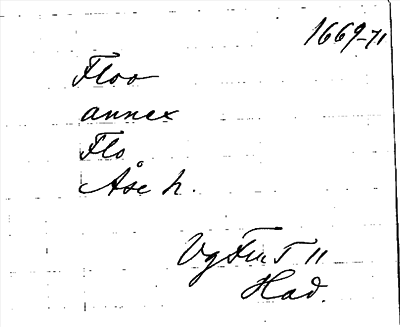 1669-71
Floo
annex
Flo
Åse h.
Vg Fu T 11
Had.